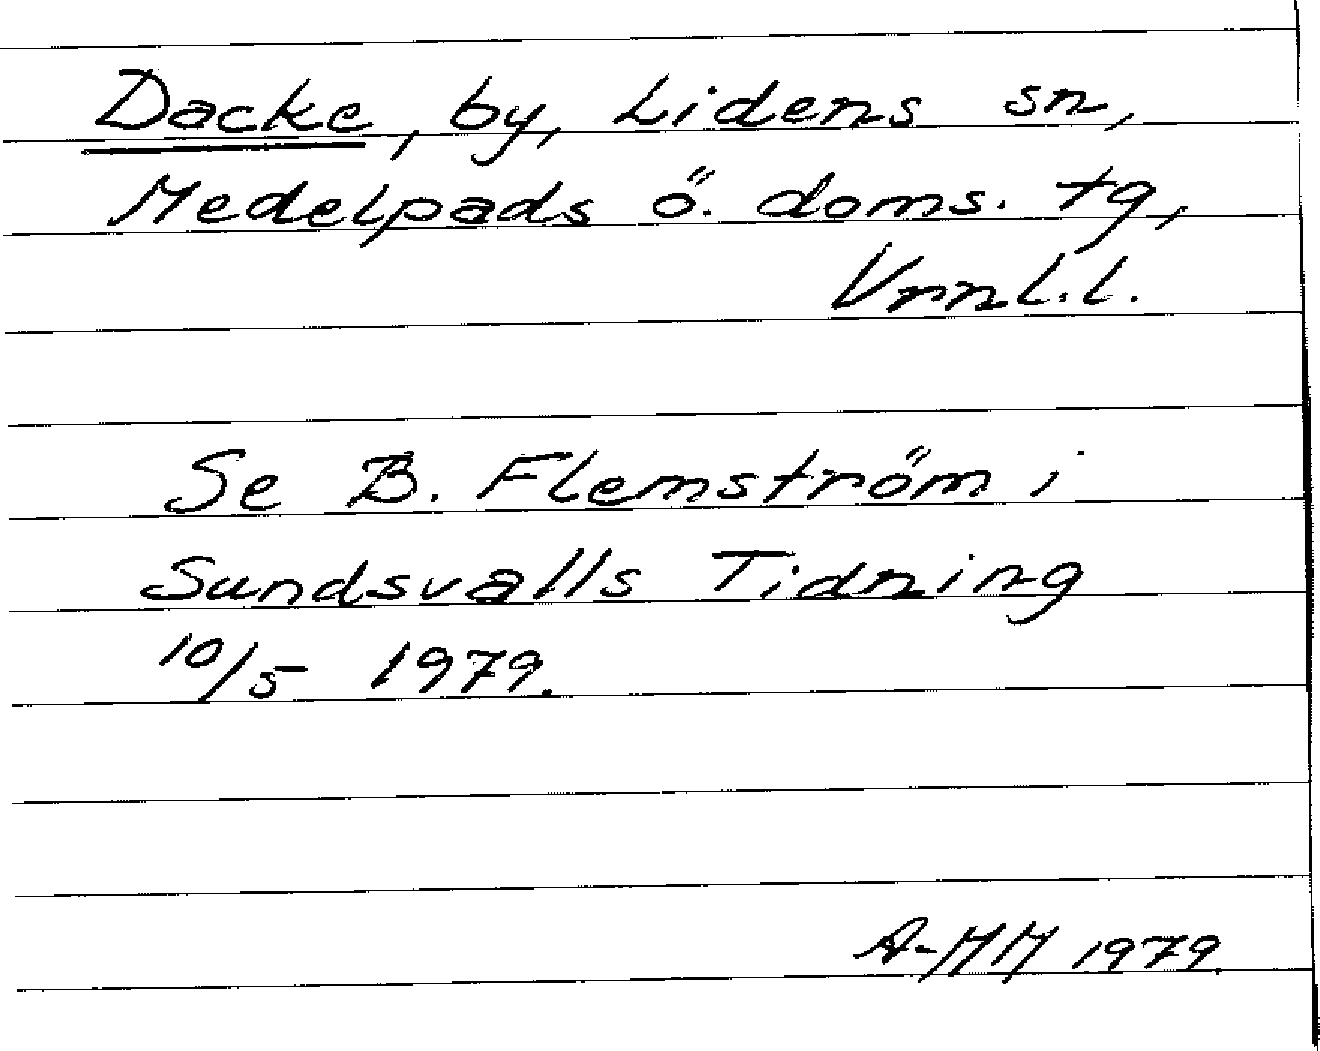 Dacke, by, Lidens sn,
Medelpads ö. doms. tg,
Vnnl.l.
Se B. Flemström i
Sundsvalls Tidning
10/5 1979.
A-MM 1979.